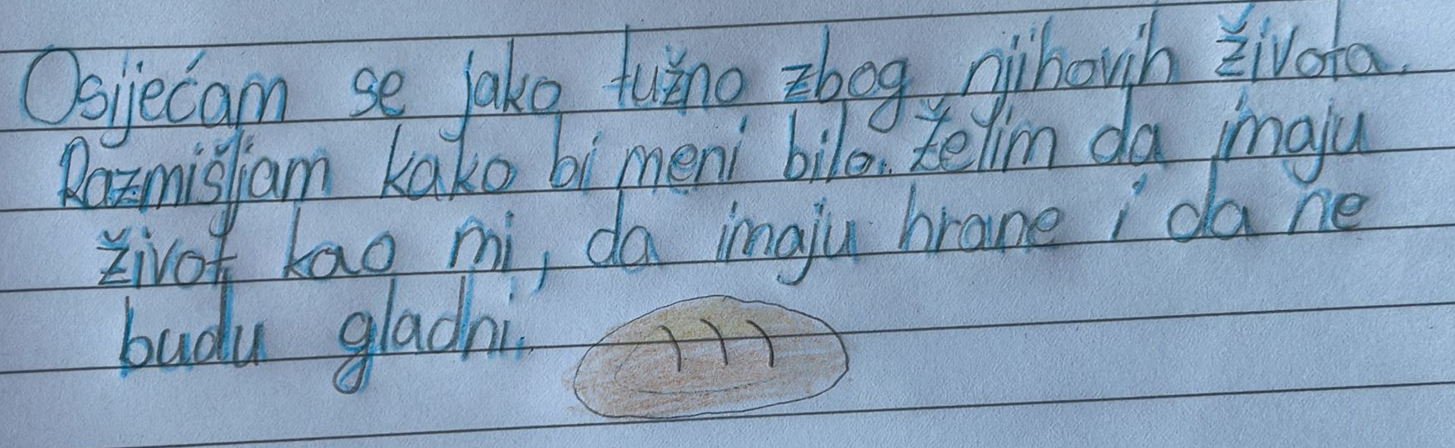 Osijećam se jako tužno zbog njihovih života.
Razmišljam kako bi meni bilo. Želim da imaju
život kao mi, da imaju hrane i da ne
budu gladni.